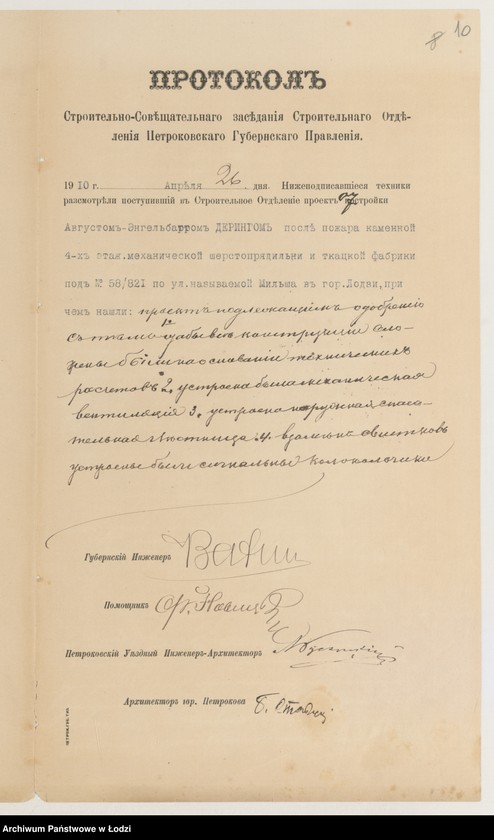 8 10
ПРОТОКОЛЪ
Строительно-Совѣщательнаго засѣданія Строительнаго Отдѣ-
ленія Петроковскаго Губернскаго Правленія.
1910 г. Апрѣля 26 дня. Нижеподписавшіеся техники
разсмотрѣли поступившій въ Строительное Отдѣленіе проектъ постройки
Августомъ-Энгельбертомъ ДЕРИНГОМЪ послѣ пожара каменной
4-хъ этаж.механической шерстопрядильни и ткацкой фабрики
подъ № 58/821 по ул.называемой Мильша въ гор.Лодзи,при
чемъ нашли: проектъ подлежащимъ одобренію
съ тѣмъ 1, дабы всѣ конструкціи
были на основаніи техническихъ
расчетовъ 2, устроена была механическая
вентиляція 3, устроена наружная спаса-
тельная лѣстница 4,
устроены были сигнальные колокольчики
Губернскій Инженеръ
Помощникъ
Петроковскій Уѣздный Инженеръ-Архитекторъ
Архитекторъ гор. Петрокова
Archiwum Państwowe w Łodzi